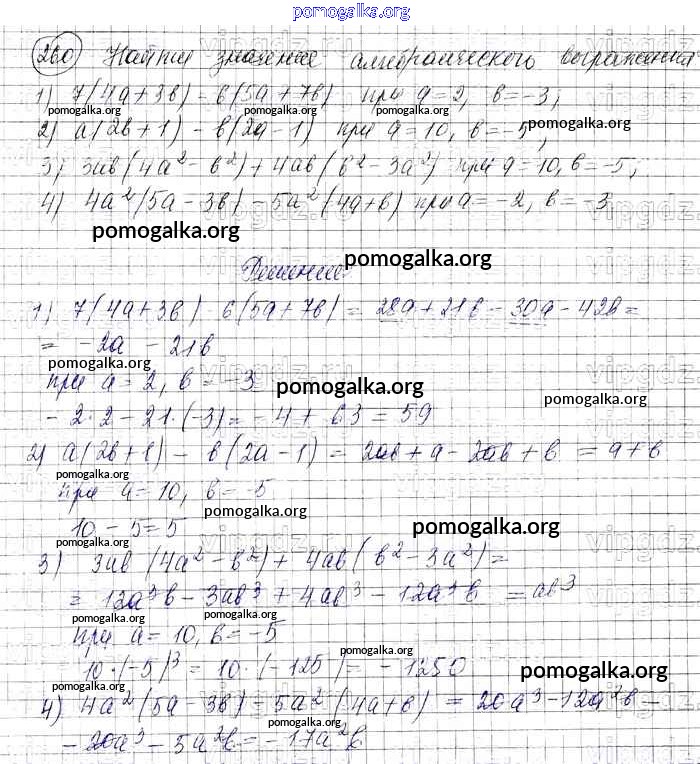 pomogalka.org
260 Найти значение алгебраического выражения
1) 7(4a+3b) - 6(5a+7b) при a=2, b=-3;
pomogalka.org pomogalka.org
2) a(2b+1) - b(2a-1) при a=10, b=-5;
pomogalka.org
3) 3ab(4a²-b²)+4ab(b²-3a²) при a=10, b=-5;
4) 4a²(5a-3b)-5a²(4a+b) при a=-2, b=-3
vipgdz.ru
pomogalka.org
pomogalka.org
Решение:
1) 7(4a+3b) 6(5a+7b) = 28a+21b-30a-42b=
= -2a - 21b
pomogalka.org
при a=2, b=-3
pomogalka.org
pomogalka.org
-2·2-21·(-3)=-4+63=59
2) a(2b+1) - b(2a-1) = 2ab+a-2ab+b = a+b
pomogalka.org
при a=10, b=-5
pomogalka.org
10-5=5
pomogalka.org
3) 3ab(4a²-b²)+4ab(b²-3a²)=
pomogalka.org
= 12a³b-3ab³+4ab³-12a³b = ab³
pomogalka.org pomogalka.org
при a=10, b=-5
10·(-5)³=10·(-125)=-1250
pomogalka.org
pomogalka.org
pomogalka.org
4) 4a²(5a-3b)-5a²(4a+b) = 20a³-12a²b-
pomogalka.org
-20a³-5a²b=-17a²b
pomogalka.org